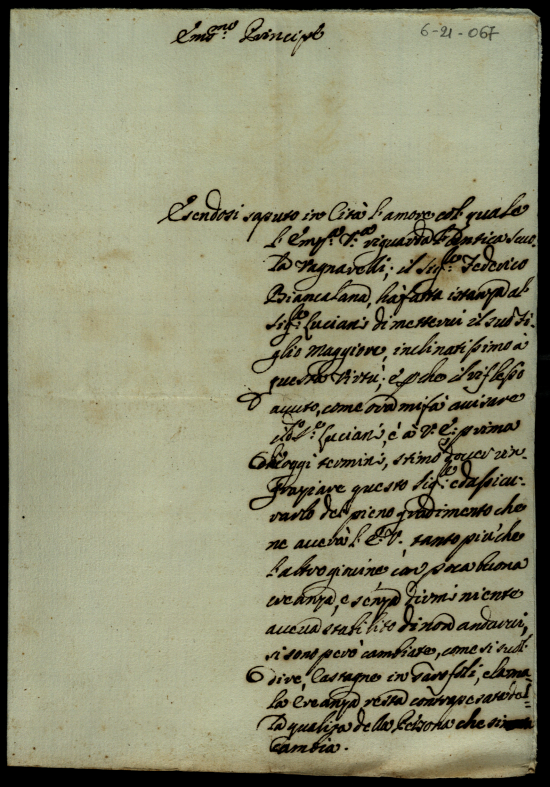 6-21-067
Em.mo Principe
Essendosi saputo in Città l'amore col quale
l'Em.za V.ra riguarda l'antica scuo-
la Vagnarelli; il Sig.re Federico
Biancalana, hà fatta istanza al
Sig.re Luciani di mettervi il suo fi-
glio Maggiore, inclinatissimo à
questa Virtù; e p che il riflesso
avuto, come ora mi fà avisare
il d.o S.re Luciani, è à V. E. prima
che oggi termini, stimo dover rin-
graziare questo Sig.re ed assicu-
rarlo del pieno gradimento che
ne averà l'E. V. tanto più che
l'altre con poca buona
creanza, e senza dirmi niente
aveva stabilito di non andarvi,
si sono però cambiate, come si suol
dire Castagne in Garofoli, e la ma-
la creanza resta contrapesata del-
la qualità della Persona che si
cambia.